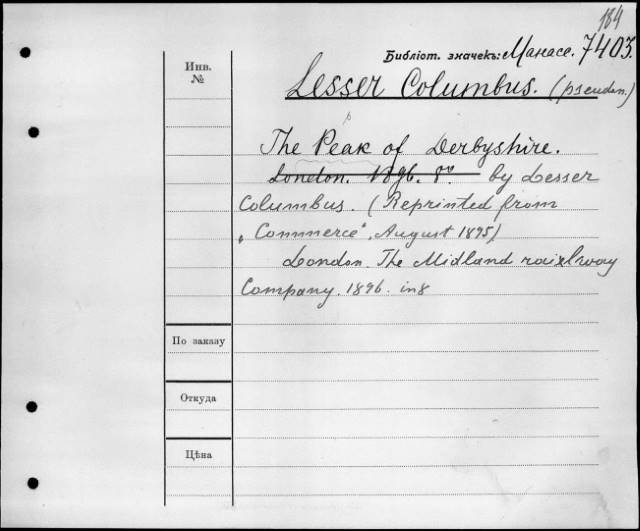 184
Библіот. значекъ: Манасе. 7403.
Инв.
№
Lesser Columbus. (pseudon.)
The Peak of Derbyshire.
London. 1896. 8°. by Lesser
Columbus. (Reprinted from
„Commerce", August 1895)
London. The Midland railway
Company. 1896. in 8
По заказу
Откуда
Цѣна